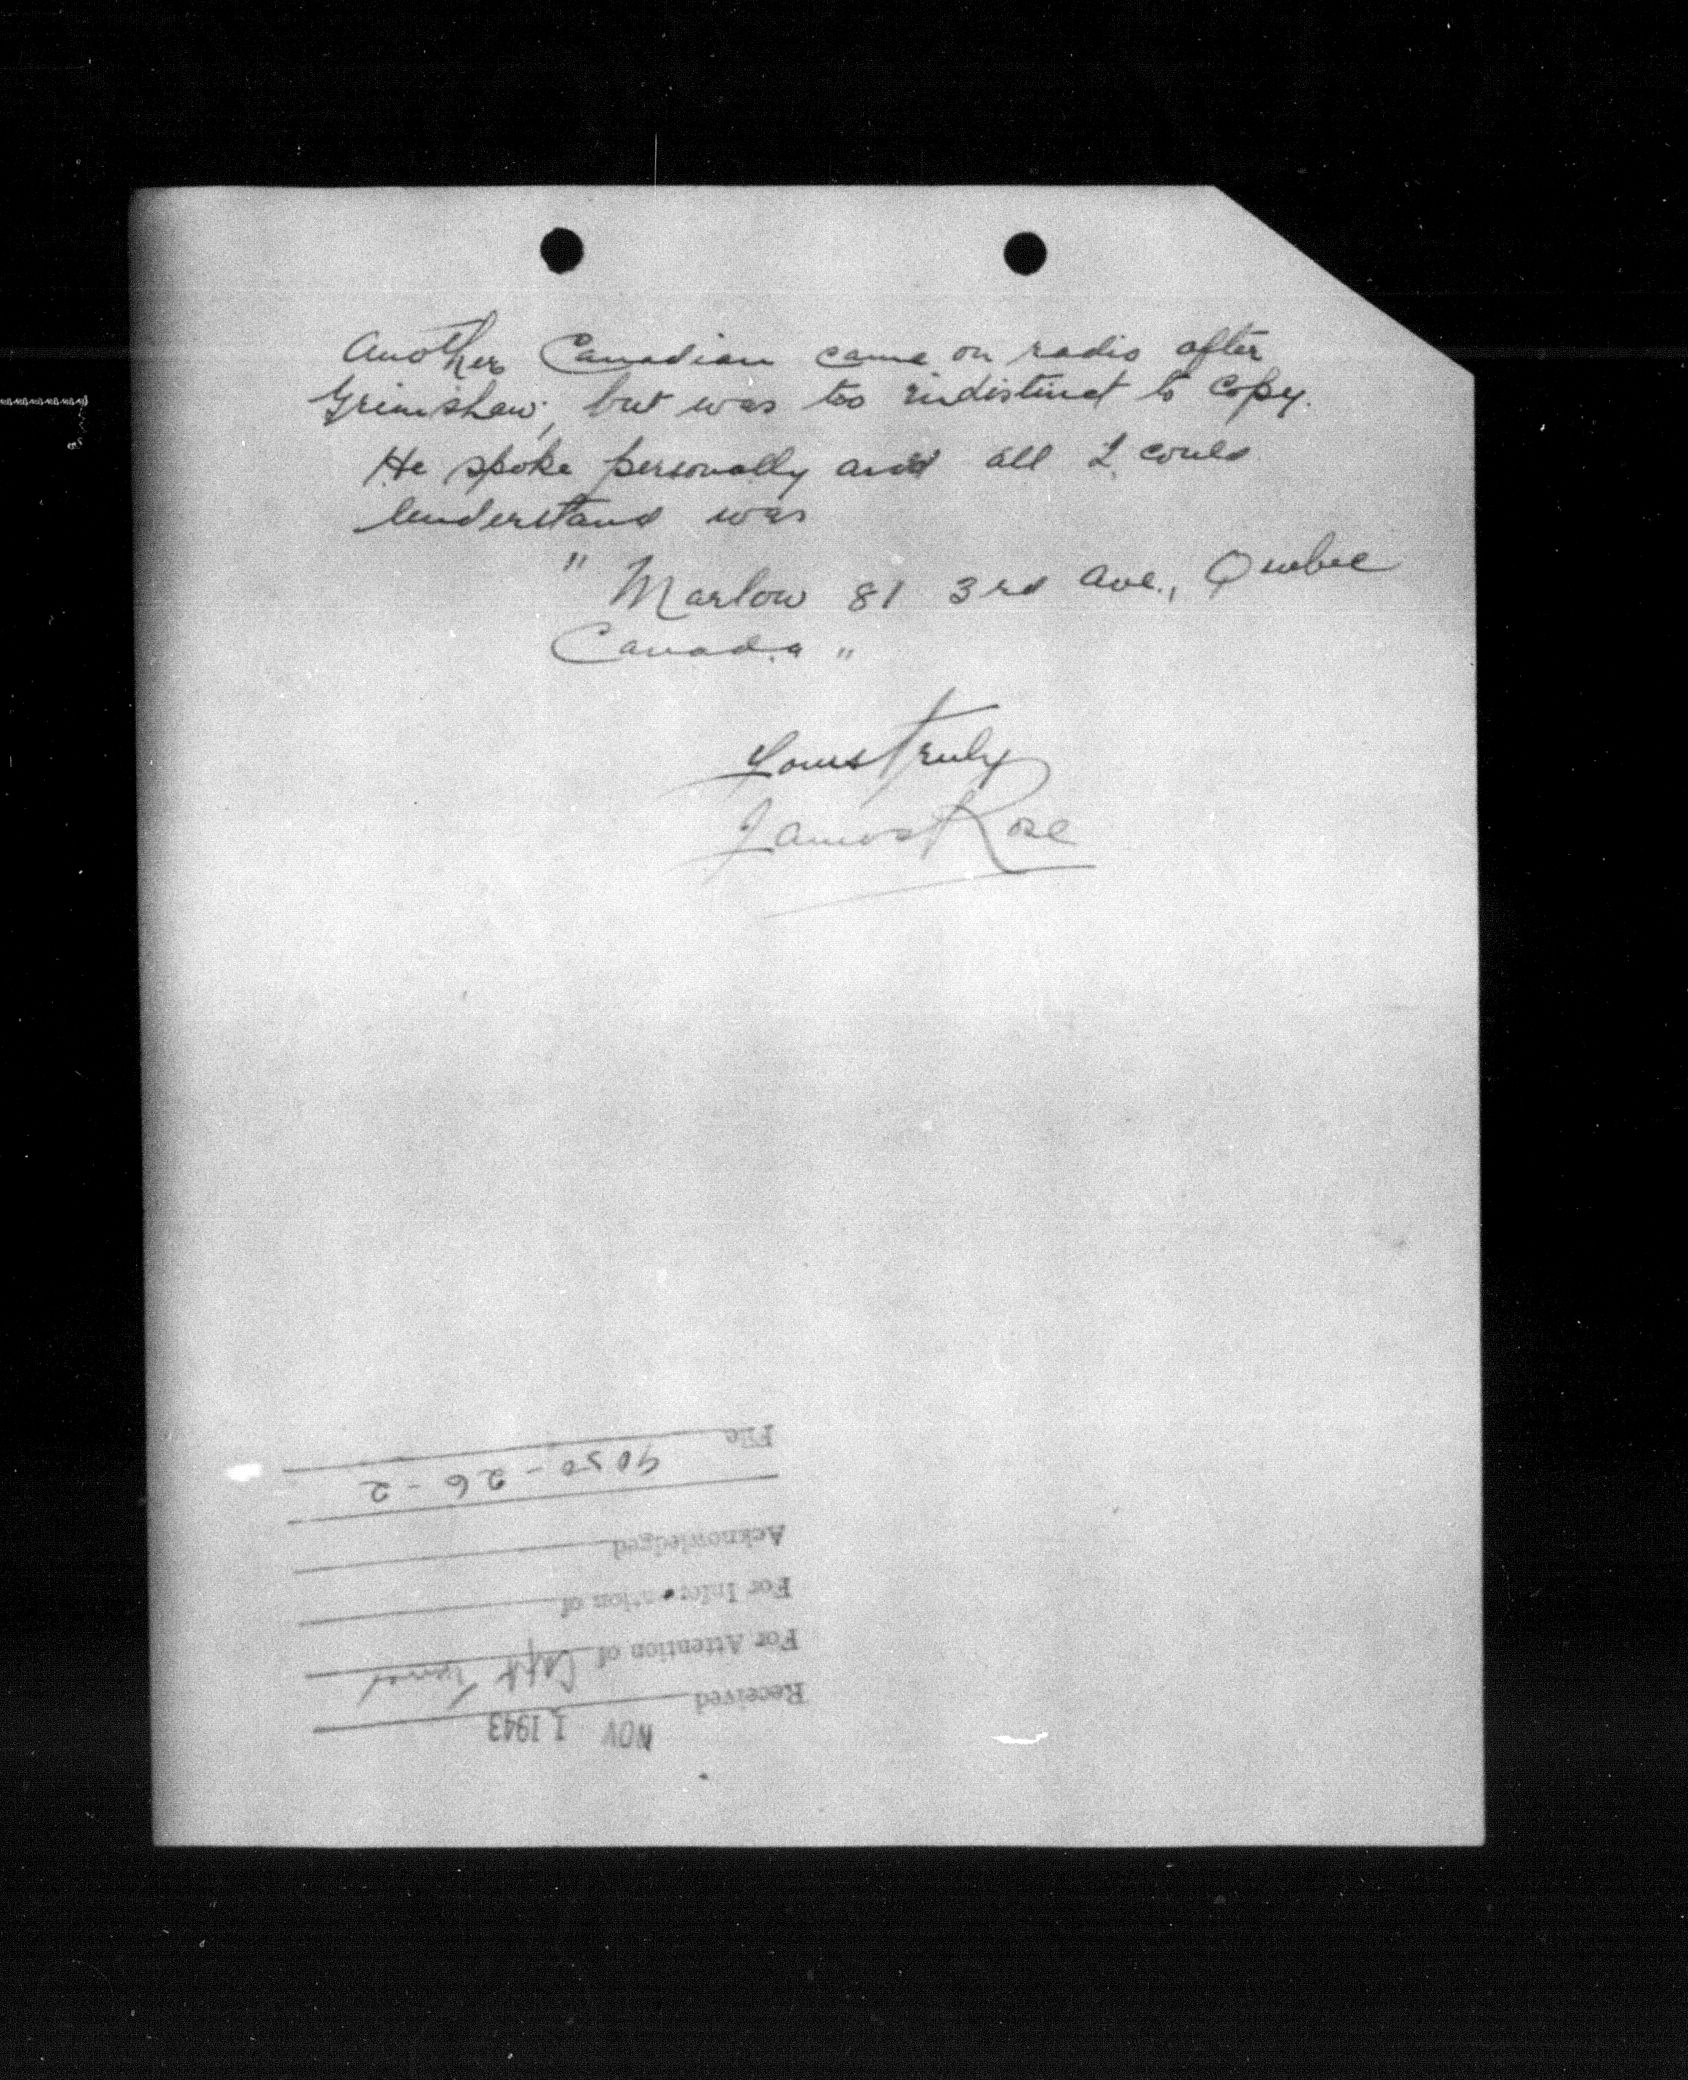 Another Canadian came on radio after
Grimshaw, but was too indistinct to copy.
He spoke personally and all I could
understand was
" Marlow 81 3rd Ave., Quebec
Canada "
Yours truly
James Rose
Received NOV 1 1943
For Attention of Capt
For Information of
Acknowledged
9050-26-2
File